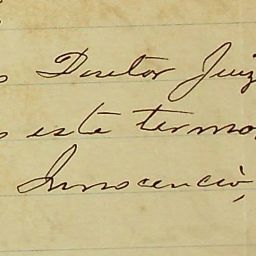 Doutor Juiz
este termo,
Innocencio,